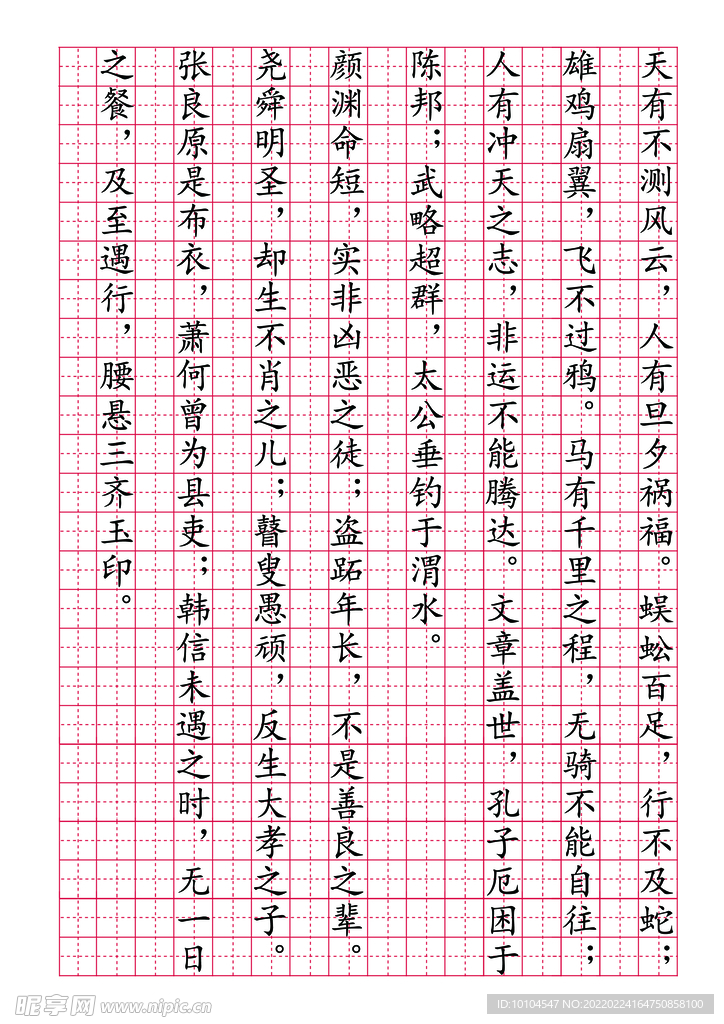 天有不测风云，人有旦夕祸福。蜈蚣百足，行不及蛇；
雄鸡扇翼，飞不过鸦。马有千里之程，无骑不能自往；
人有冲天之志，非运不能腾达。文章盖世，孔子厄困于
陈邦；武略超群，太公垂钓于渭水。
颜渊命短，实非凶恶之徒；盗跖年长，不是善良之辈。
尧舜明圣，却生不肖之儿；瞽叟愚顽，反生大孝之子。
张良原是布衣，萧何曾为县吏；韩信未遇之时，无一日
之餐，及至遇行，腰悬三齐玉印。
昵享网 www.nipic.cn
ID:10104547 NO:20220224164750858100